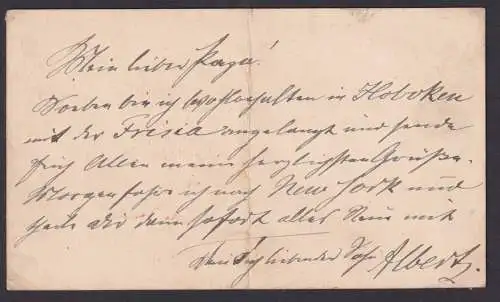 Mein lieber Papa!
Soeben bin ich wohlerhalten in Hoboken
mit der Frisia angelangt und sende
Euch Allen meine herzlichsten Grüße.
Morgen fahre ich nach New York und
theile Dir dann sofort alles Neue mit
Dein Dich liebender Sohn Albert.